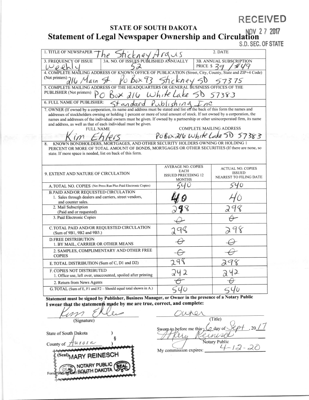 RECEIVED
NOV 27 2017
S.D. SEC. OF STATE
STATE OF SOUTH DAKOTA
Statement of Legal Newspaper Ownership and Circulation
1. TITLE OF NEWSPAPER The Stickney Argus 2. DATE
3. FREQUENCY OF ISSUE 3A. NO. OF ISSUES PUBLISHED ANNUALLY 3B. ANNUAL SUBSCRIPTION
Weekly 52 PRICE: $ 39 / $49
4. COMPLETE MAILING ADDRESS OF KNOWN OFFICE OF PUBLICATION (Street, City, County, State and ZIP+4 Code)
(Not printers) 216 Main St Po Box 93 Stickney SD 57375
5. COMPLETE MAILING ADDRESS OF THE HEADQUARTERS OR GENERAL BUSINESS OFFICES OF THE
PUBLISHER (Not printers) PO Box 216 White Lake SD 57383
6. FULL NAME OF PUBLISHER: Standard Publishing Inc
7. OWNER (If owned by a corporation, its name and address must be stated and
addresses of stockholders owning or holding 1 percent or more of total amount of stock. If not owned by a corporation, the
names and addresses of the individual owners must be given. If owned by a partnership or other unincorporated firm, its name
and address, as well as that of each individual must be given.
FULL NAME COMPLETE MAILING ADDRESS
Kim Ehlers PO Box 216 White Lake SD 57383
8. KNOWN BONDHOLDERS, MORTGAGEES, AND OTHER SECURITY HOLDERS OWNING OR HOLDING 1
PERCENT OR MORE OF TOTAL AMOUNT OF BONDS, MORTGAGES OR OTHER SECURITIES (If there are none, so
state. If more space is needed, list on back of this form.
9. EXTENT AND NATURE OF CIRCULATION
AVERAGE NO. COPIES
EACH
ISSUED PRECEDING 12
MONTHS
ACTUAL NO. COPIES
ISSUED
NEAREST TO FILING DATE
A. TOTAL NO. COPIES 540 540
B. PAID AND/OR REQUESTED CIRCULATION
1. Sales through dealers and carriers, street vendors,
and counter sales. 40 40
2. Mail Subscription
(Paid and or requested) 298 298
3. Paid Electronic Copies
C. TOTAL PAID AND/OR REQUESTED CIRCULATION
298 298
D. FREE DISTRIBUTION
1. BY MAIL, CARRIER OR OTHER MEANS
2. SAMPLES, COMPLIMENTARY AND OTHER FREE
COPIES
E. TOTAL DISTRIBUTION (Sum of C, D1 and D2) 298 298
F. COPIES NOT DISTRIBUTED
1. Office use, left over, unaccounted, spoiled after printing 242 242
2. Return from News Agents
G. TOTAL (Sum of E, F1 and F2 - Should equal total shown in A) 540 540
Statement must be signed by Publisher, Business Manager, or Owner in the presence of a Notary Public
I swear that the statements made by me are true, correct, and complete:
Kim Ehlers Owner
(Signature) (Title)
State of South Dakota
Sworn to before me this 6 day of Sept, 2017
County of Aurora
Mary Reinesch
Notary Public
My commission expires: 4-12-20
(Seal) MARY REINESCH
NOTARY PUBLIC
SOUTH DAKOTA